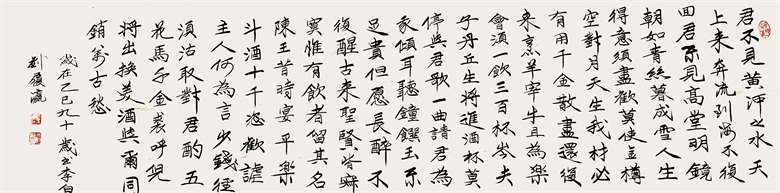 君不见黄河之水天
上来奔流到海不復
回君不見高堂明鏡
朝如青絲暮成雪人生
得意須盡歡莫使金樽
空對月天生我材必
有用千金散盡還復
來烹羊宰牛且為樂
會須一飲三百杯岑夫
子丹丘生將進酒杯莫
停與君歌一曲請君為
我傾耳聽鐘饌玉不
足貴但愿長醉不
復醒古來聖賢皆寂
寞惟有飲者留其名
陳王昔時宴平樂
斗酒十千恣歡謔
主人何為言少錢徑
須沽取對君酌五
花馬千金裘呼兒
將出換美酒與爾同
銷萬古愁
歲在乙巳九十歲書李白